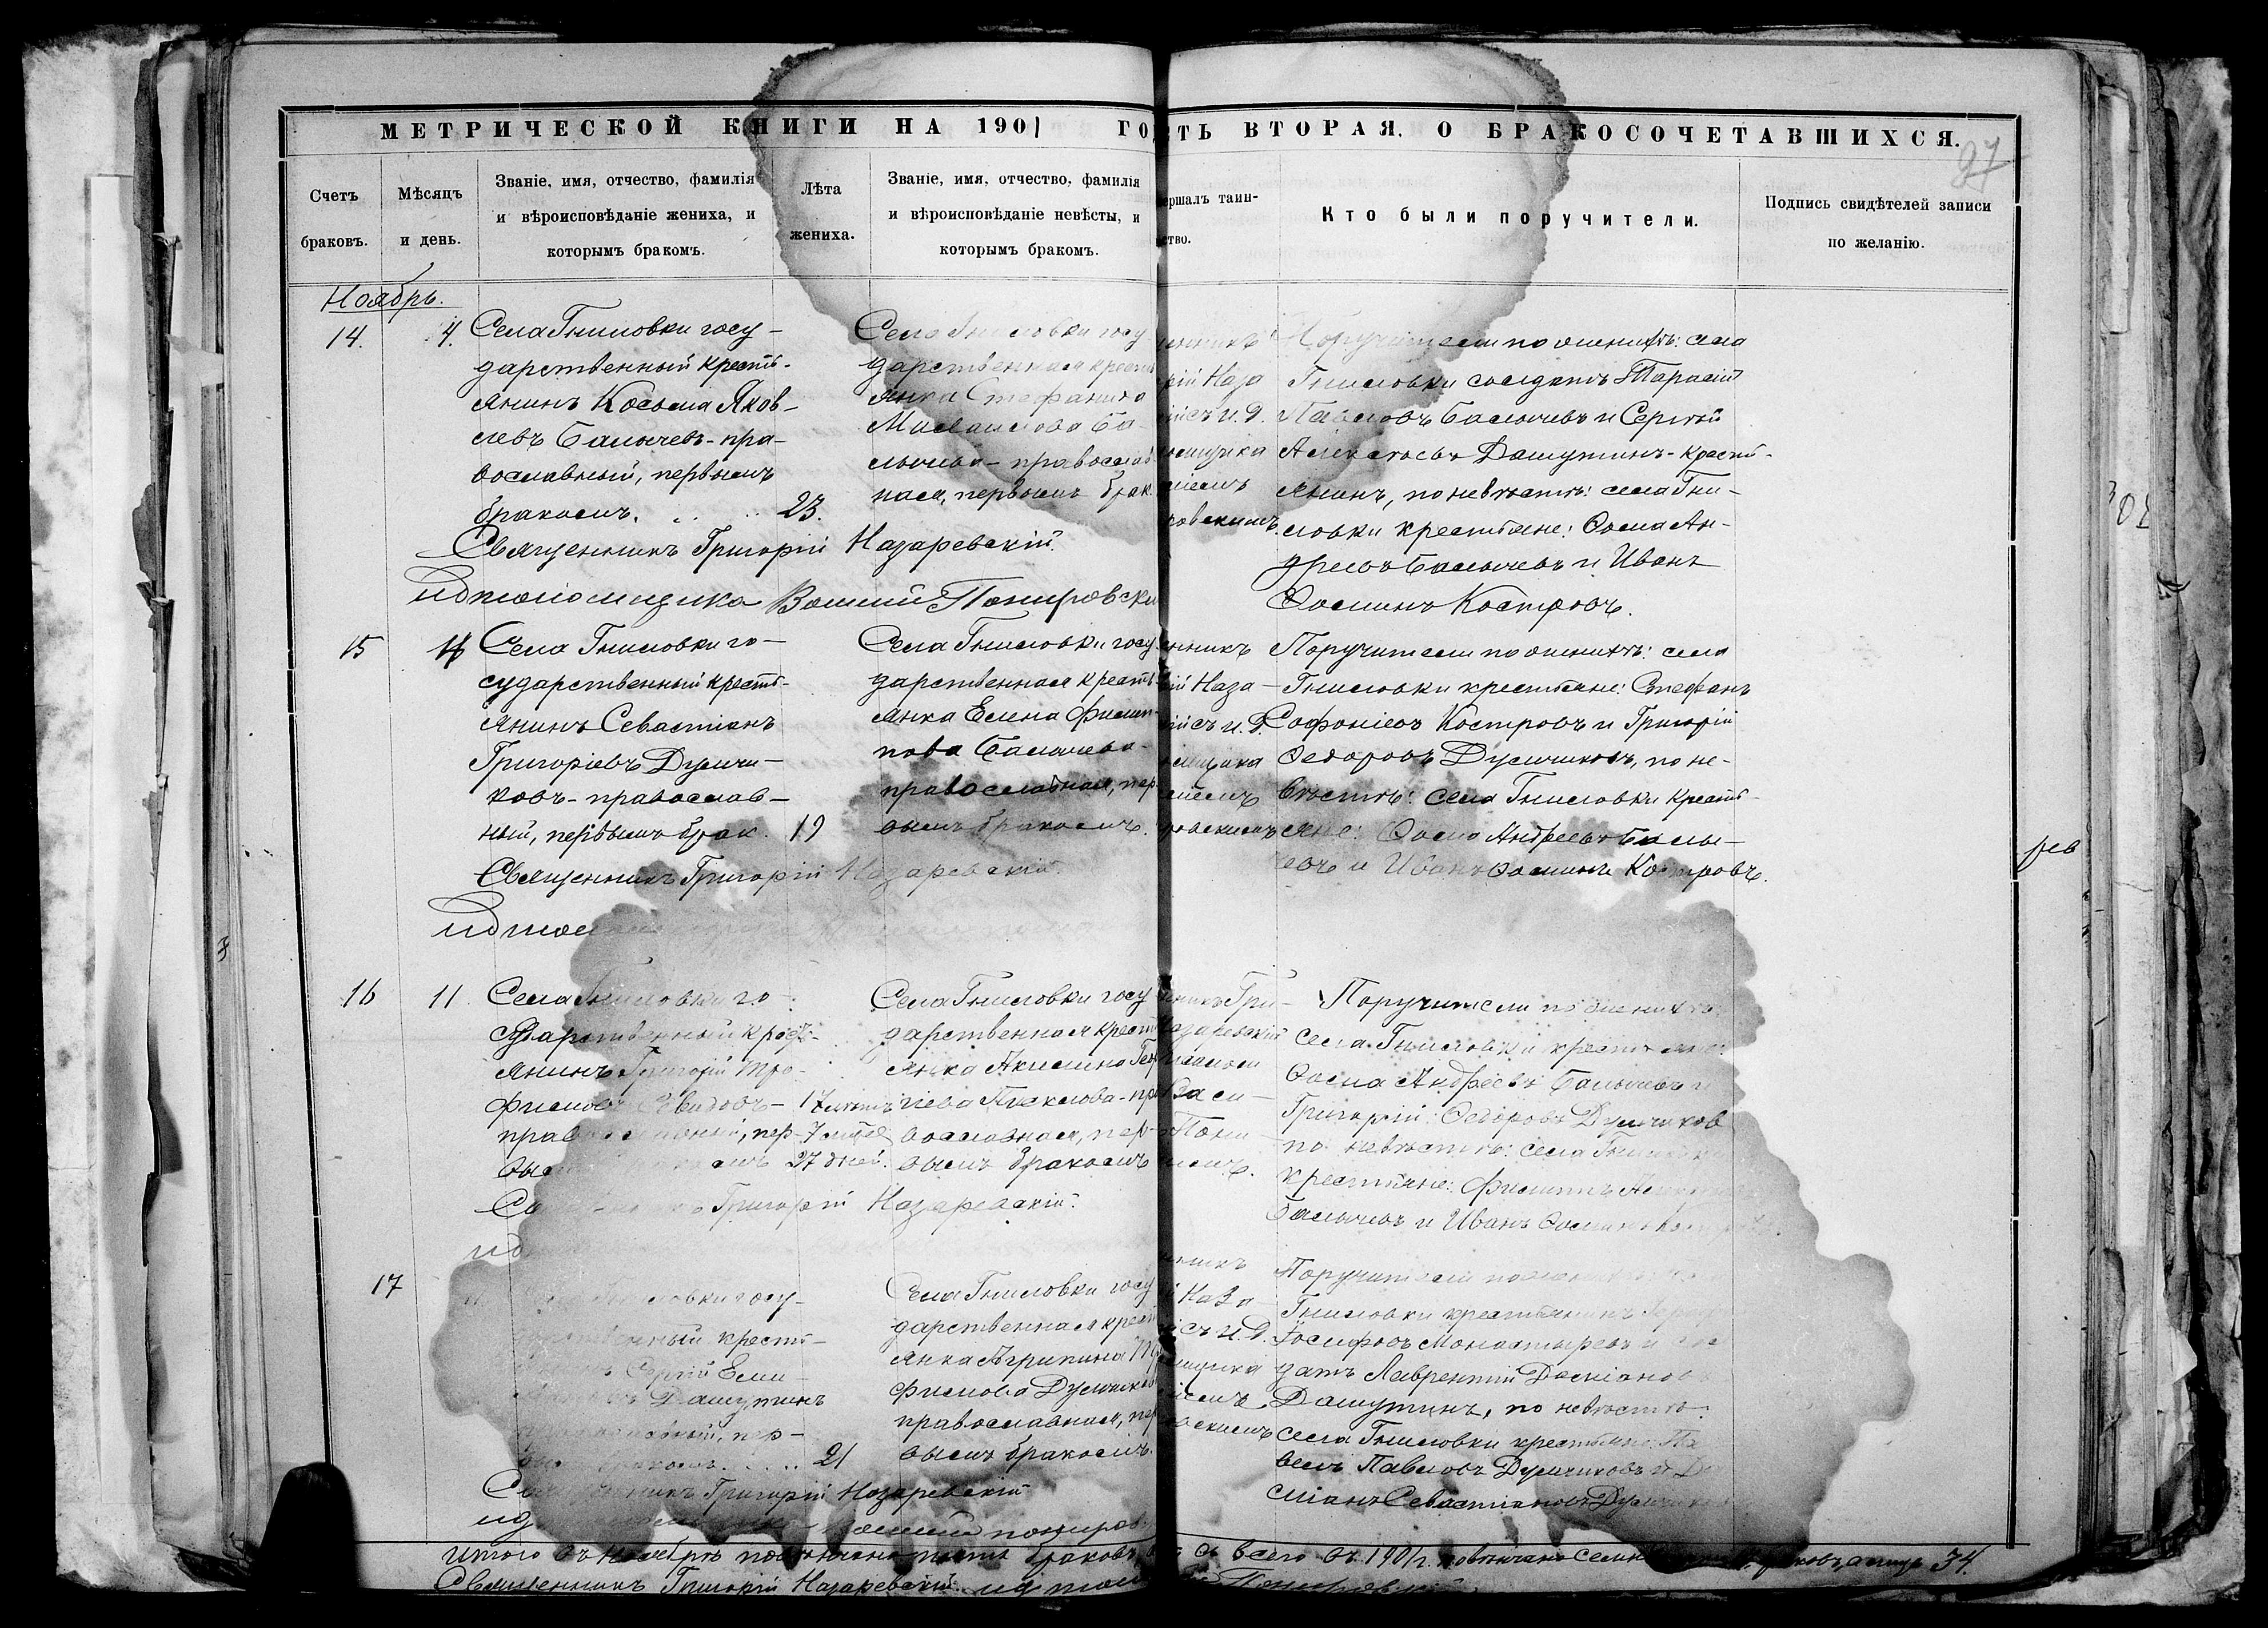 МЕТРИЧЕСКОЙ КНИГИ НА 1901 ГО
СТЬ ВТОРАЯ, О БРАКОСОЧЕТАВШИХСЯ.
27
Счетъ браковъ.
Мѣсяцъ и день.
Званіе, имя, отчество, фамилія
и вѣроисповѣданіе жениха, и
которымъ бракомъ.
Лѣта
жениха.
Званіе, имя, отчество, фамилія
и вѣроисповѣданіе невѣсты, и
которымъ бракомъ.
ершалъ таин-
ство.
Кто были поручители.
Подпись свидѣтелей записи
по желанію.
Ноябрь.
14.
4.
Села Гниловки госу-
дарственный кресть-
янинъ Косьма Яков-
левъ Балычевъ - пра-
вославный, первымъ
бракомъ.
23.
Села Гниловки госу
дарственная кресть
янка Стефанида
Ба-
лычева - православ
ная, первымъ брак.
ій Наза
ій съ и. д.
омщика
ліемъ
ровскимъ.
Поручители по женихѣ: села
Гниловки солдатъ Тарасій
Павловъ Балычевъ и Сергѣй
Алексѣевъ Дашутинъ - кресть-
янинъ, по невѣстѣ: села Гни-
ловки крестьяне: Ѳома Ан-
дреевъ Балычевъ и Иванъ
Ѳоминъ Костровъ.
Священникъ Григорій Назаревскій.
ид псаломщика Василій Понировскі
15
Села Гниловки го-
сударственный кресть-
янинъ Севастіанъ
Григоріевъ Думчи-
ковъ - православ-
ный, первымъ брак.
19
Села Гниловки госу
дарственная кресть
янка Елена Филип-
пова Балычева -
православная, пер
вымъ бракомъ.
енникъ
ій Наза-
ій съ и. д.
омщика
ліемъ
ровскимъ
Поручители по женихѣ: села
Гниловки крестьяне: Стефанъ
Софоніевъ Костровъ и Григорій
Ѳедоровъ Думчиковъ, по не-
вѣстѣ: села Гниловки кресть-
яне: Ѳома Андреевъ Балы-
евъ и Иванъ Ѳоминъ Костровъ.
рев
Священникъ Григорій Назаревскій.
ид псал
16
11.
Села Гниловки го-
сударственный кресть-
янинъ Григорій Тро-
фимовъ
прав ный, пер-
вы омъ
17 лѣтъ
7 мѣс.
27 дней.
Села Гниловки госу
дарственная кресть
янка Акилина
православная, пер-
вымъ бракомъ
никъ Гри-
Назаревскій
псалом
Васи-
Пони
Поручители по женихѣ
села Гниловки крестьяне:
Ѳома Андреевъ Балычевъ и
Григорій Ѳедоровъ Думчиков
по невѣстѣ: села Гнилов
крестьяне: Филиппъ
Балычевъ и Иванъ Ѳоминъ
Григорій Назаревскій.
ид
17
ловки госу-
ный кресть-
Сергій Еми-
Дашутинъ
православный, пер-
бракомъ
21
Села Гниловки госу
дарственная кресть
янка Агрипина Тро
фимова Думчиков
православная, пер
вымъ бракомъ.
никъ
й Наза
съ и. д.
омщика
ліемъ
скимъ
Поручители по жен
Гниловки крестьянинъ
Іосифовъ Монастыревъ и сол
датъ Лаврентій Даміановъ
Дашутинъ, по невѣстѣ:
села Гниловки крестьяне: Па
велъ Павловъ Думчиковъ и Да
міанъ Севастіановъ Думчик
Священникъ Григорій Назаревскій
ид Василій Пониров
Итого въ Ноябрѣ повѣнчано пять браковъ
Священникъ Григорій Назаревскій ид псал
всего въ 1901 г. повѣнчано семн браковъ, а лицъ 34.
Понировскій